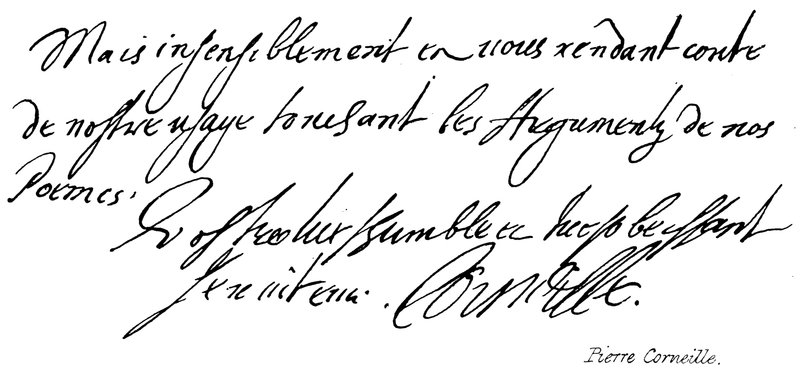 Mais insensiblement en vous rendant conte
de nostre usage touchant les Argumentz de nos
Poemes.
Vostre tres humble et tres obeissant
serviteur. Corneille.
Pierre Corneille.